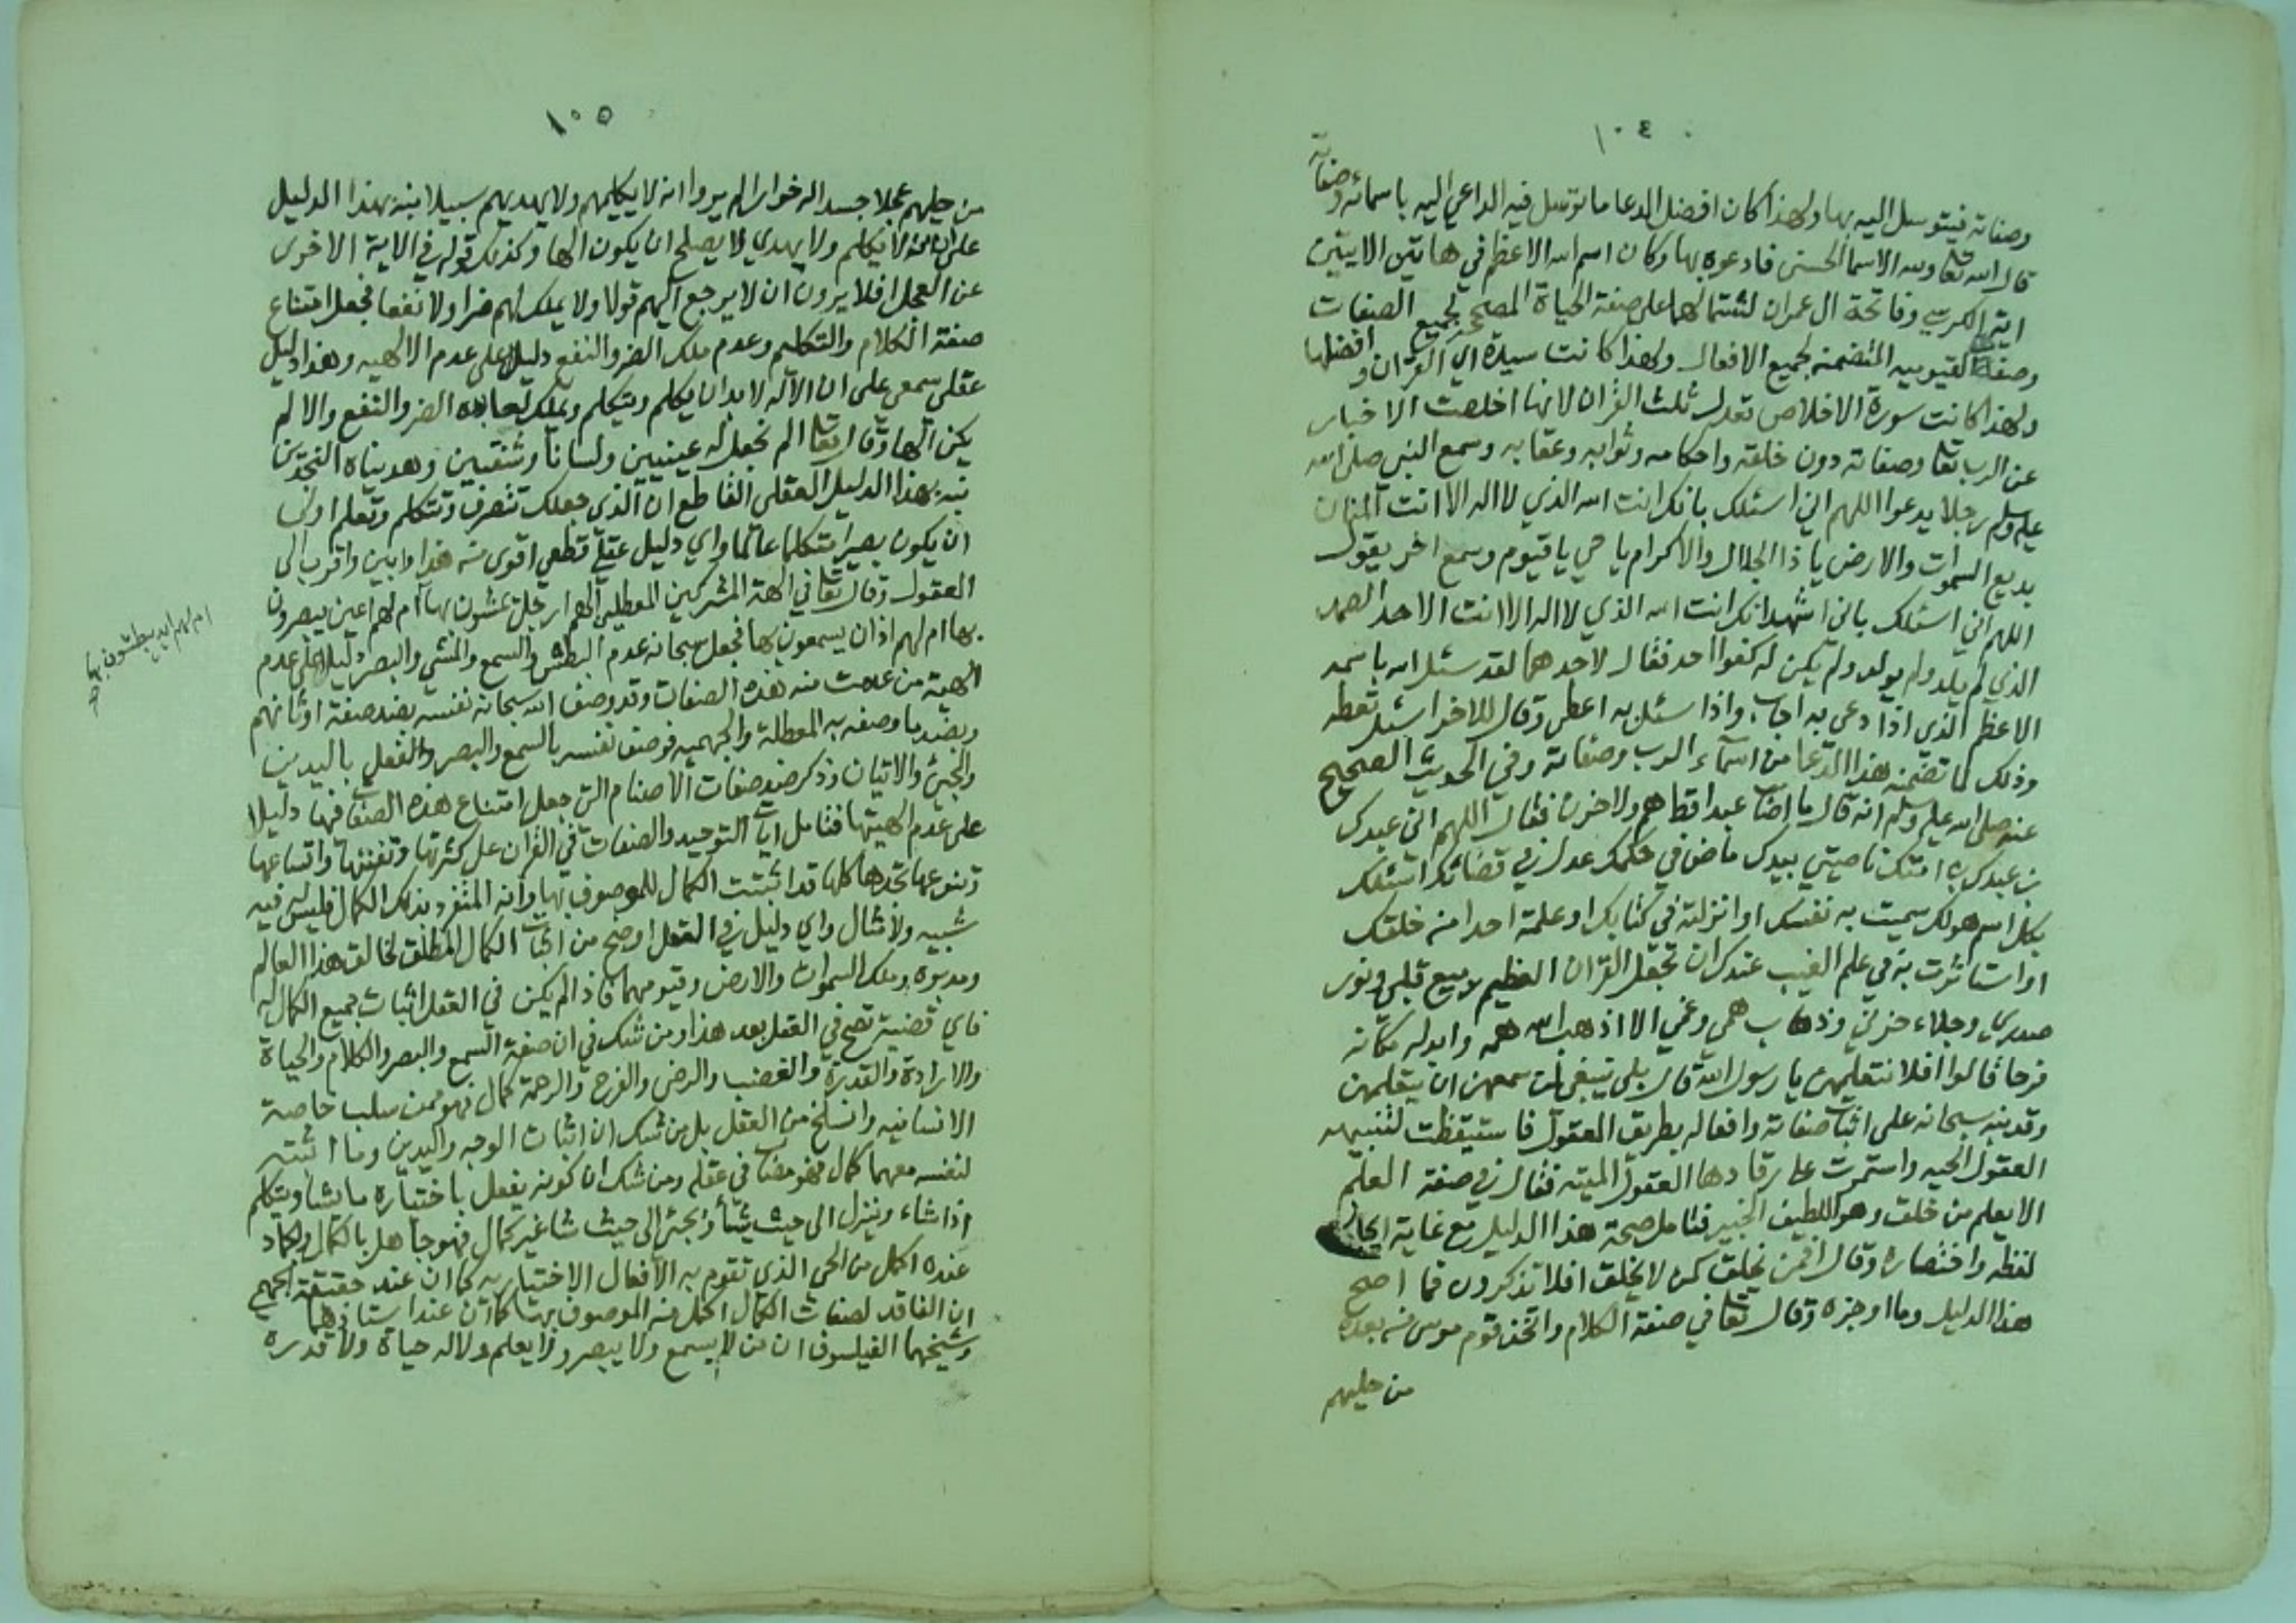 ١٠٤
وصفاته فيتوسل اليه بها ولهذا كان افضل الدعا ما توسل فيه الداعي اليه باسمائه وصفاته
قال الله تعا ولله الاسما الحسنى فادعوه بها وكان اسم الله الاعظم في هاتين الايتين
اية الكرسي وفاتحة ال عمران لشتمالهما على صفة الحياة المصححة لجميع الصفات
وصفة القيوميه المتضمنه لجميع الافعال ولهذا كانت سيدة اي القران وافضلها
ولهذا كانت سورة الاخلاص تعدل ثلث القران لانها اخلصت الاخبار
عن الرب تعا وصفاته دون خلقه واحكامه وثوابه وعقابه وسمع النبي صلى الله
عليه وسلم رجلا يدعوا اللهم اني اسئلك بانك انت الله الذي لا اله الا انت المنان
بديع السموات والارض يا ذا الجلال والاكرام يا حي يا قيوم وسمع اخر يقول
اللهم اني اسئلك باني اشهد انك انت الله الذي لا اله الا انت الاحد الصمد
الذي لم يلد ولم يولد ولم يكن له كفوا احد فقال لاحدهما لقد سئل الله باسمه
الاعظم الذي اذا دعى به اجاب واذا سئل به اعطى وقال للاخر اسئل تعطه
وذلك لما تضمنه هذا الدعا من اسماء الرب وصفاته وفي الحديث الصحيح
عنه صلى الله عليه وسلم انه قال ما اصاب عبدا قط هم ولا حزن فقال اللهم اني عبدك
بن عبدك بن امتك ناصيتي بيدك ماض في حكمك عدل في قضائك اسئلك
بكل اسم هو لك سميت به نفسك او انزلته في كتابك او علمته احدا من خلقك
او استاثرت به في علم الغيب عندك ان تجعل القران العظيم ربيع قلبي ونور
صدري وجلاء حزني وذهاب همي وغمي الا اذهب الله همه وابدله مكانه
فرحا قالوا افلا نتعلمهن يا رسول الله قال بلى ينبغي لمن سمعهن ان يتعلمهن
وقد نبه سبحانه على اثبات صفاته وافعاله بطريق المعقول فاستيقظت لتنبيهه
العقول الحيه واستمرت على رقادها العقول الميته فقال في صفة العلم
الا يعلم من خلق وهو اللطيف الخبير فتامل صحة هذا الدليل مع غاية ايجاز
لفظه واختصاره وقال افمن يخلق كمن لا يخلق افلا تذكرون فما اصح
هذا الدليل وما اوجزه وقال تعا في صفة الكلام واتخذ قوم موسى من بعده
من حليهم
١٠٥
من حليهم عجلا جسدا له خوار الم يروا انه لا يكلمهم ولا يهديهم سبيلا نبه بهذا الدليل
على ان من لا يكلم ولا يهدي لا يصلح ان يكون الها وكذلك قوله في الاية الاخرى
عن العجل افلا يرون ان لا يرجع اليهم قولا ولا يملك لهم ضرا ولا نفعا فجعل امتناع
صفة الكلام والتكليم وعدم ملك الضر والنفع دليلا على عدم الالهيه وهذا دليل
عقلي سمعي على ان الاله لا بد ان يكلم ويتكلم ويملك لعابده الضر والنفع والا لم
يكن الها وقال تعا الم نجعل له عينيين ولسانا وشفتيين وهديناه النجدين
نبه بهذا الدليل العقلي القاطع ان الذي جعلك تتصرف وتتكلم وتعلم اولى
ان يكون بصيرا متكلما عالما واي دليل عقلي قطعي اقوى من هذا وابين واقرب الى
العقول وقال تعا في الهة المشركين المعطلين الهم ارجل يمشون بها ام لهم اعين يبصرون
بها ام لهم اذان يسمعون بها فجعل سبحانه عدم البطش والسمع والمشي والبصر دليلا على عدم
ام لهم ايد يبطشون بها صح
الهية من عدمت منه هذه الصفات وقد وصف الله سبحانه نفسه بضد صفة اوثانهم
وبضد ما وصفه به المعطلة والجهميه فوصف نفسه بالسمع والبصر والفعل باليدين
والمجئ والاتيان وذكر ضد صفات الاصنام التي جعل امتناع هذه الصفات فيها دليلا
على عدم الهيتها فتامل ايات التوحيد والصفات في القران على كثرتها وتفننها واتساعها
وتنوعها تجدها كلها قد اثبتت الكمال للموصوف بها وانه المتفرد بذلك الكمال فليس له فيه
شبيه ولا مثال واي دليل في العقل اوضح من اثبات الكمال المطلق لخالق هذا العالم
ومدبره وملك السموات والارض وقيومهما فاذا لم يكن في العقل اثبات جميع الكمال له
فاي قضية تصح في العقل بعد هذا ومن شك في ان صفة السمع والبصر والكلام والحياة
والارادة والقدرة والغضب والرضى والفرح والرحمة كمال فهو ممن سلب خاصة
الانسانيه وانسلخ من العقل بل من شك ان اثبات الوجه واليدين وما اثبته
لنفسه معهما كمال فهو مصاب في عقله ومن شك ان كونه يفعل باختياره ما يشا ويتكلم
اذا شاء وينزل الى حيث يشأ ويجئ الى حيث شا غير كمال فهو جاهل بالكمال والجماد
عنده اكمل من الحي الذي تقوم به الافعال الاختياريه كما ان عند حقيقة الجهمي
ان الفاقد لصفات الكمال اكمل من الموصوف بها كما ان عند استاذهما
وشيخهما الفيلسوف ان من لا يسمع ولا يبصر ولا يعلم ولا له حياة ولا قدرة